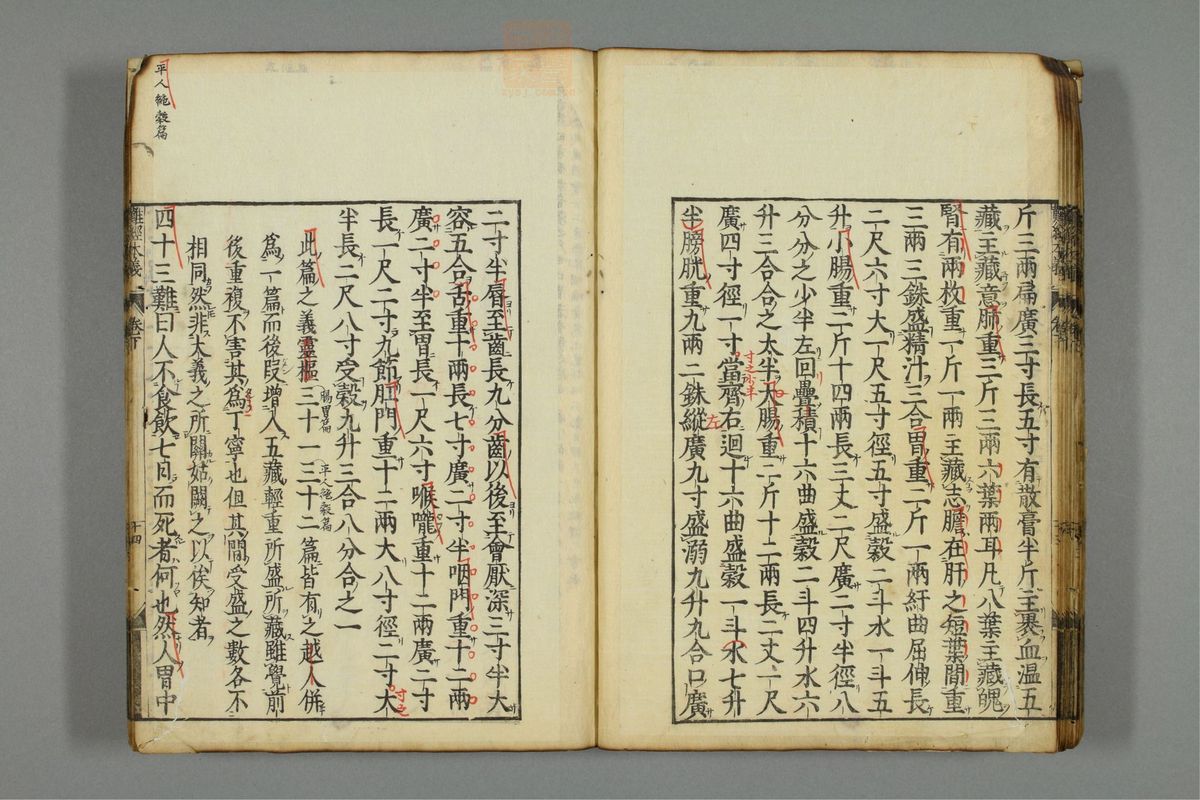 斤三兩扁廣三寸長五寸有散膏半斤主褁血溫五
藏主藏意肺重三斤三兩六葉兩耳凡八葉主藏魄
腎有兩枚重一斤一兩主藏志膽在肝之短葉間重
三兩三銖盛精汁三合胃重二斤一兩紆曲屈伸長
二尺六寸大一尺五寸徑五寸盛穀二斗水一斗五
升小腸重二斤十四兩長三丈二尺廣二寸半徑八
分分之少半左回疊積十六曲盛穀二斗四升水六
升三合合之太半大腸重二斤十二兩長二丈一尺
廣四寸徑一寸當齊右迴十六曲盛穀一斗水七升
半膀胱重九兩二銖縱廣九寸盛溺九升九合口廣
二寸半脣至齒長九分齒以後至會厭深三寸半大
容五合舌重十兩長七寸廣二寸半咽門重十二兩
廣二寸半至胃長一尺六寸喉嚨重十二兩廣二寸
長一尺二寸九節肛門重十二兩大八寸徑二寸大
半長二尺八寸受穀九升三合八分合之一
此篇之義靈樞三十一腸胃篇三十二平人絶穀篇篇皆有之越人併
爲一篇而後段增入五藏輕重所盛所藏雖覺前
後重複不害其爲丁寧也但其間受盛之數各不
相同然非大義之所關姑闕之以俟知者
四十三難曰人不食飲七日而死者何也然人胃中
平人絶穀篇
難經本義
卷下
十四